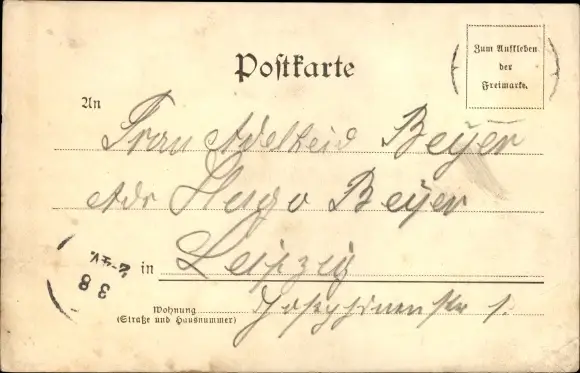 Postkarte
Zum Aufkleben
der
Freimarke.
An
Frau Adelheid Beyer
Adr Hugo Beyer
in Leipzig
Wohnung
(Straße und Hausnummer)
Josephinenstr 1.
2-4V.
3 8